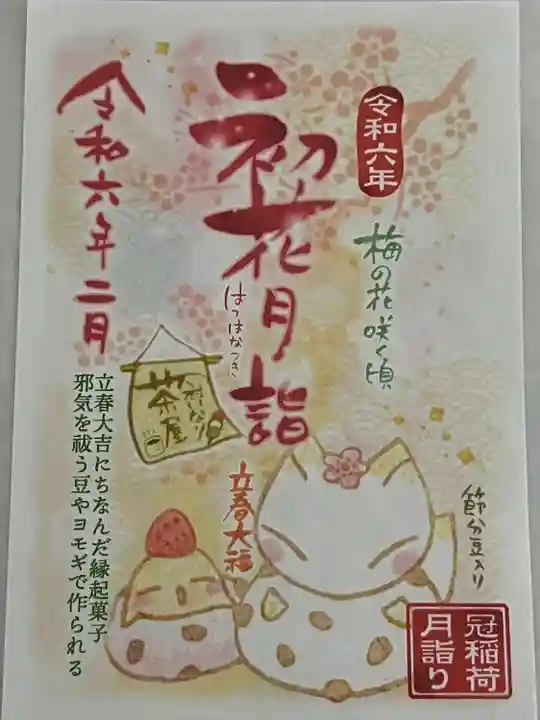 令和六年
初花月詣
はつはなつき
令和六年二月
梅の花咲く頃
いなり
茶屋
立春大福
節分豆入り
立春大吉にちなんだ縁起菓子
邪気を祓う豆やヨモギで作られる
冠稲荷
月詣り